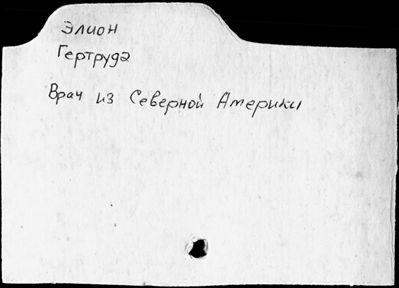 Элион
Гертруда
Врач из Северной Америки